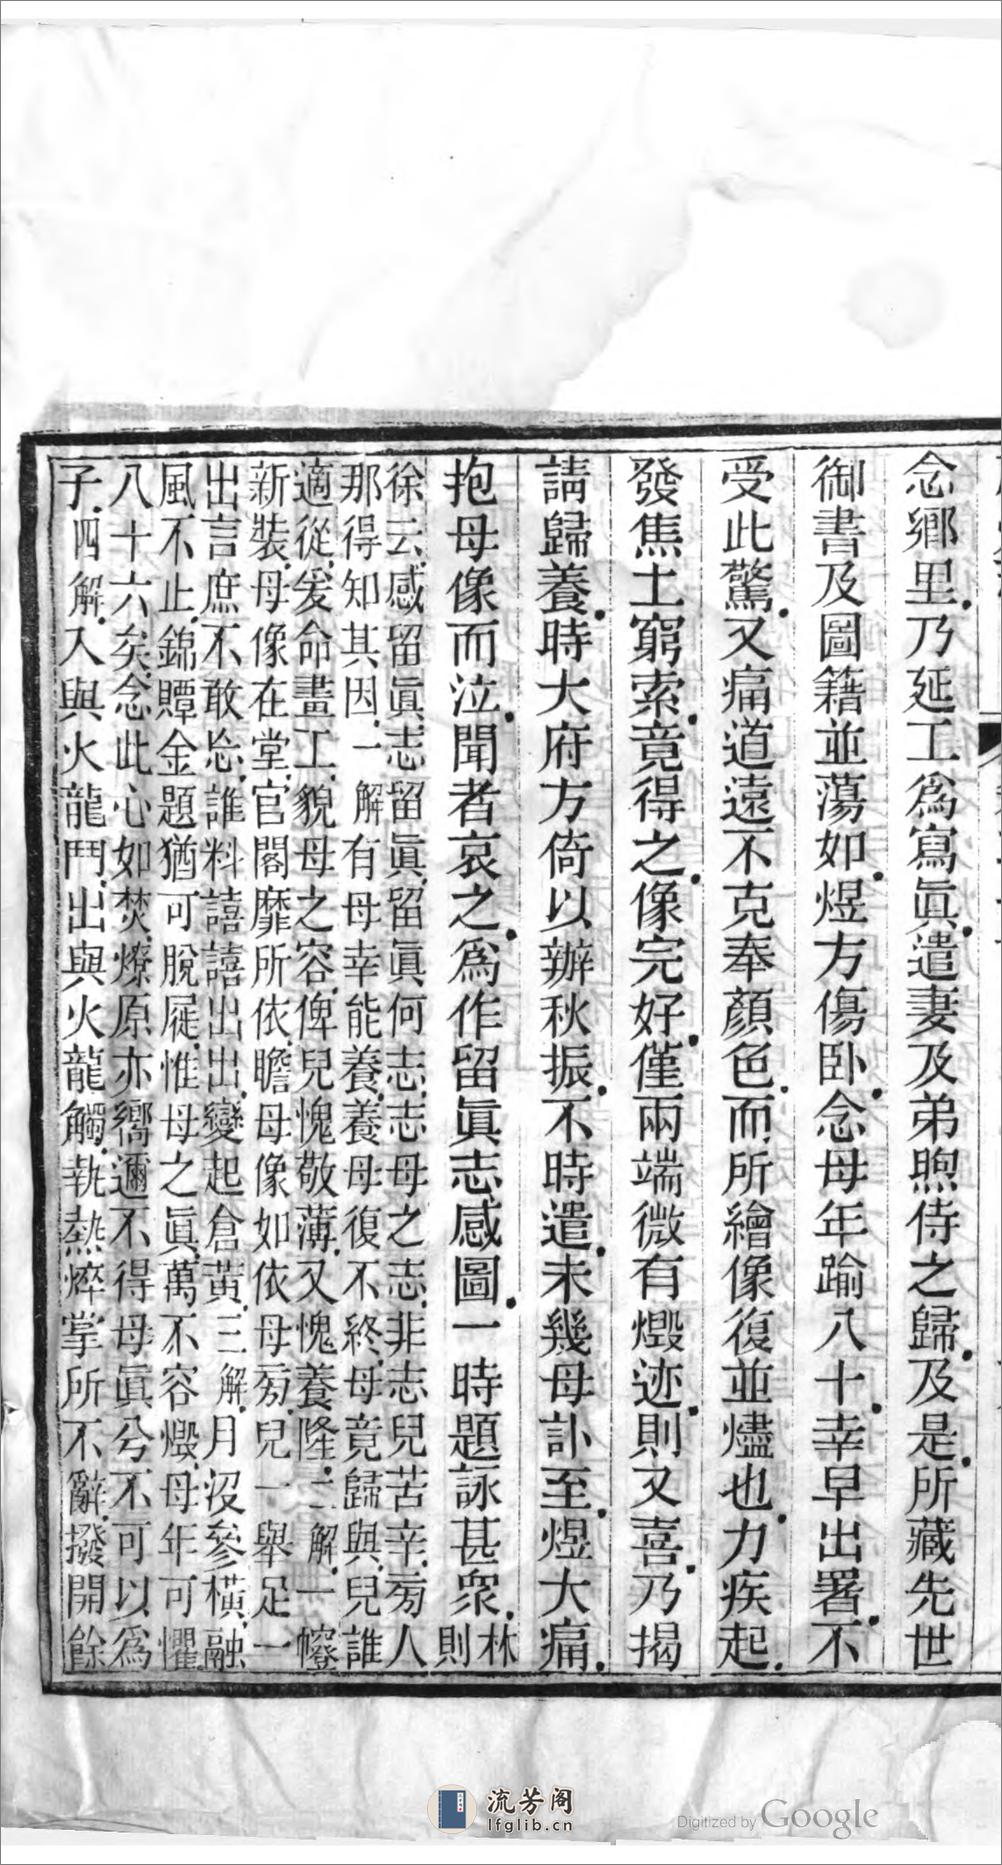 念鄉里乃延工爲寫眞遣妻及弟煦侍之歸及是所藏先世
御書及圖籍並蕩如煜方傷卧念母年踰八十幸早出署不
受此驚又痛道遠不克奉顏色而所繪像復並燼也力疾起
發焦土窮索竟得之像完好僅兩端微有燬迹則又喜乃揭
請歸養時大府方倚以辦秋振不時遣未幾母訃至煜大痛
抱母像而泣聞者哀之爲作留眞志感圖一時題詠甚衆林則
徐云感留眞志留眞留眞何志志母之志非志兒苦辛旁人
那得知其因一解有母幸能養養母復不終母竟歸與兒誰
適從爰命畫工貌母之容俾兒愧敬薄又愧養隆二解一幢
新裝母像在堂官閣靡所依瞻母像如依母旁兒一舉足一
出言庶不敢忘誰料譆譆出出變起倉黃三解月沒參橫融
風不止錦贉金題猶可脫屣惟母之眞萬不容燬母年可懼
八十六矣念此心如焚燎原亦嚮邇不得母眞兮不可以爲
子四解入與火龍鬥出與火龍觸執熱焠掌所不辭撥開餘
流芳阁
lfglib.cn
Digitized by Google